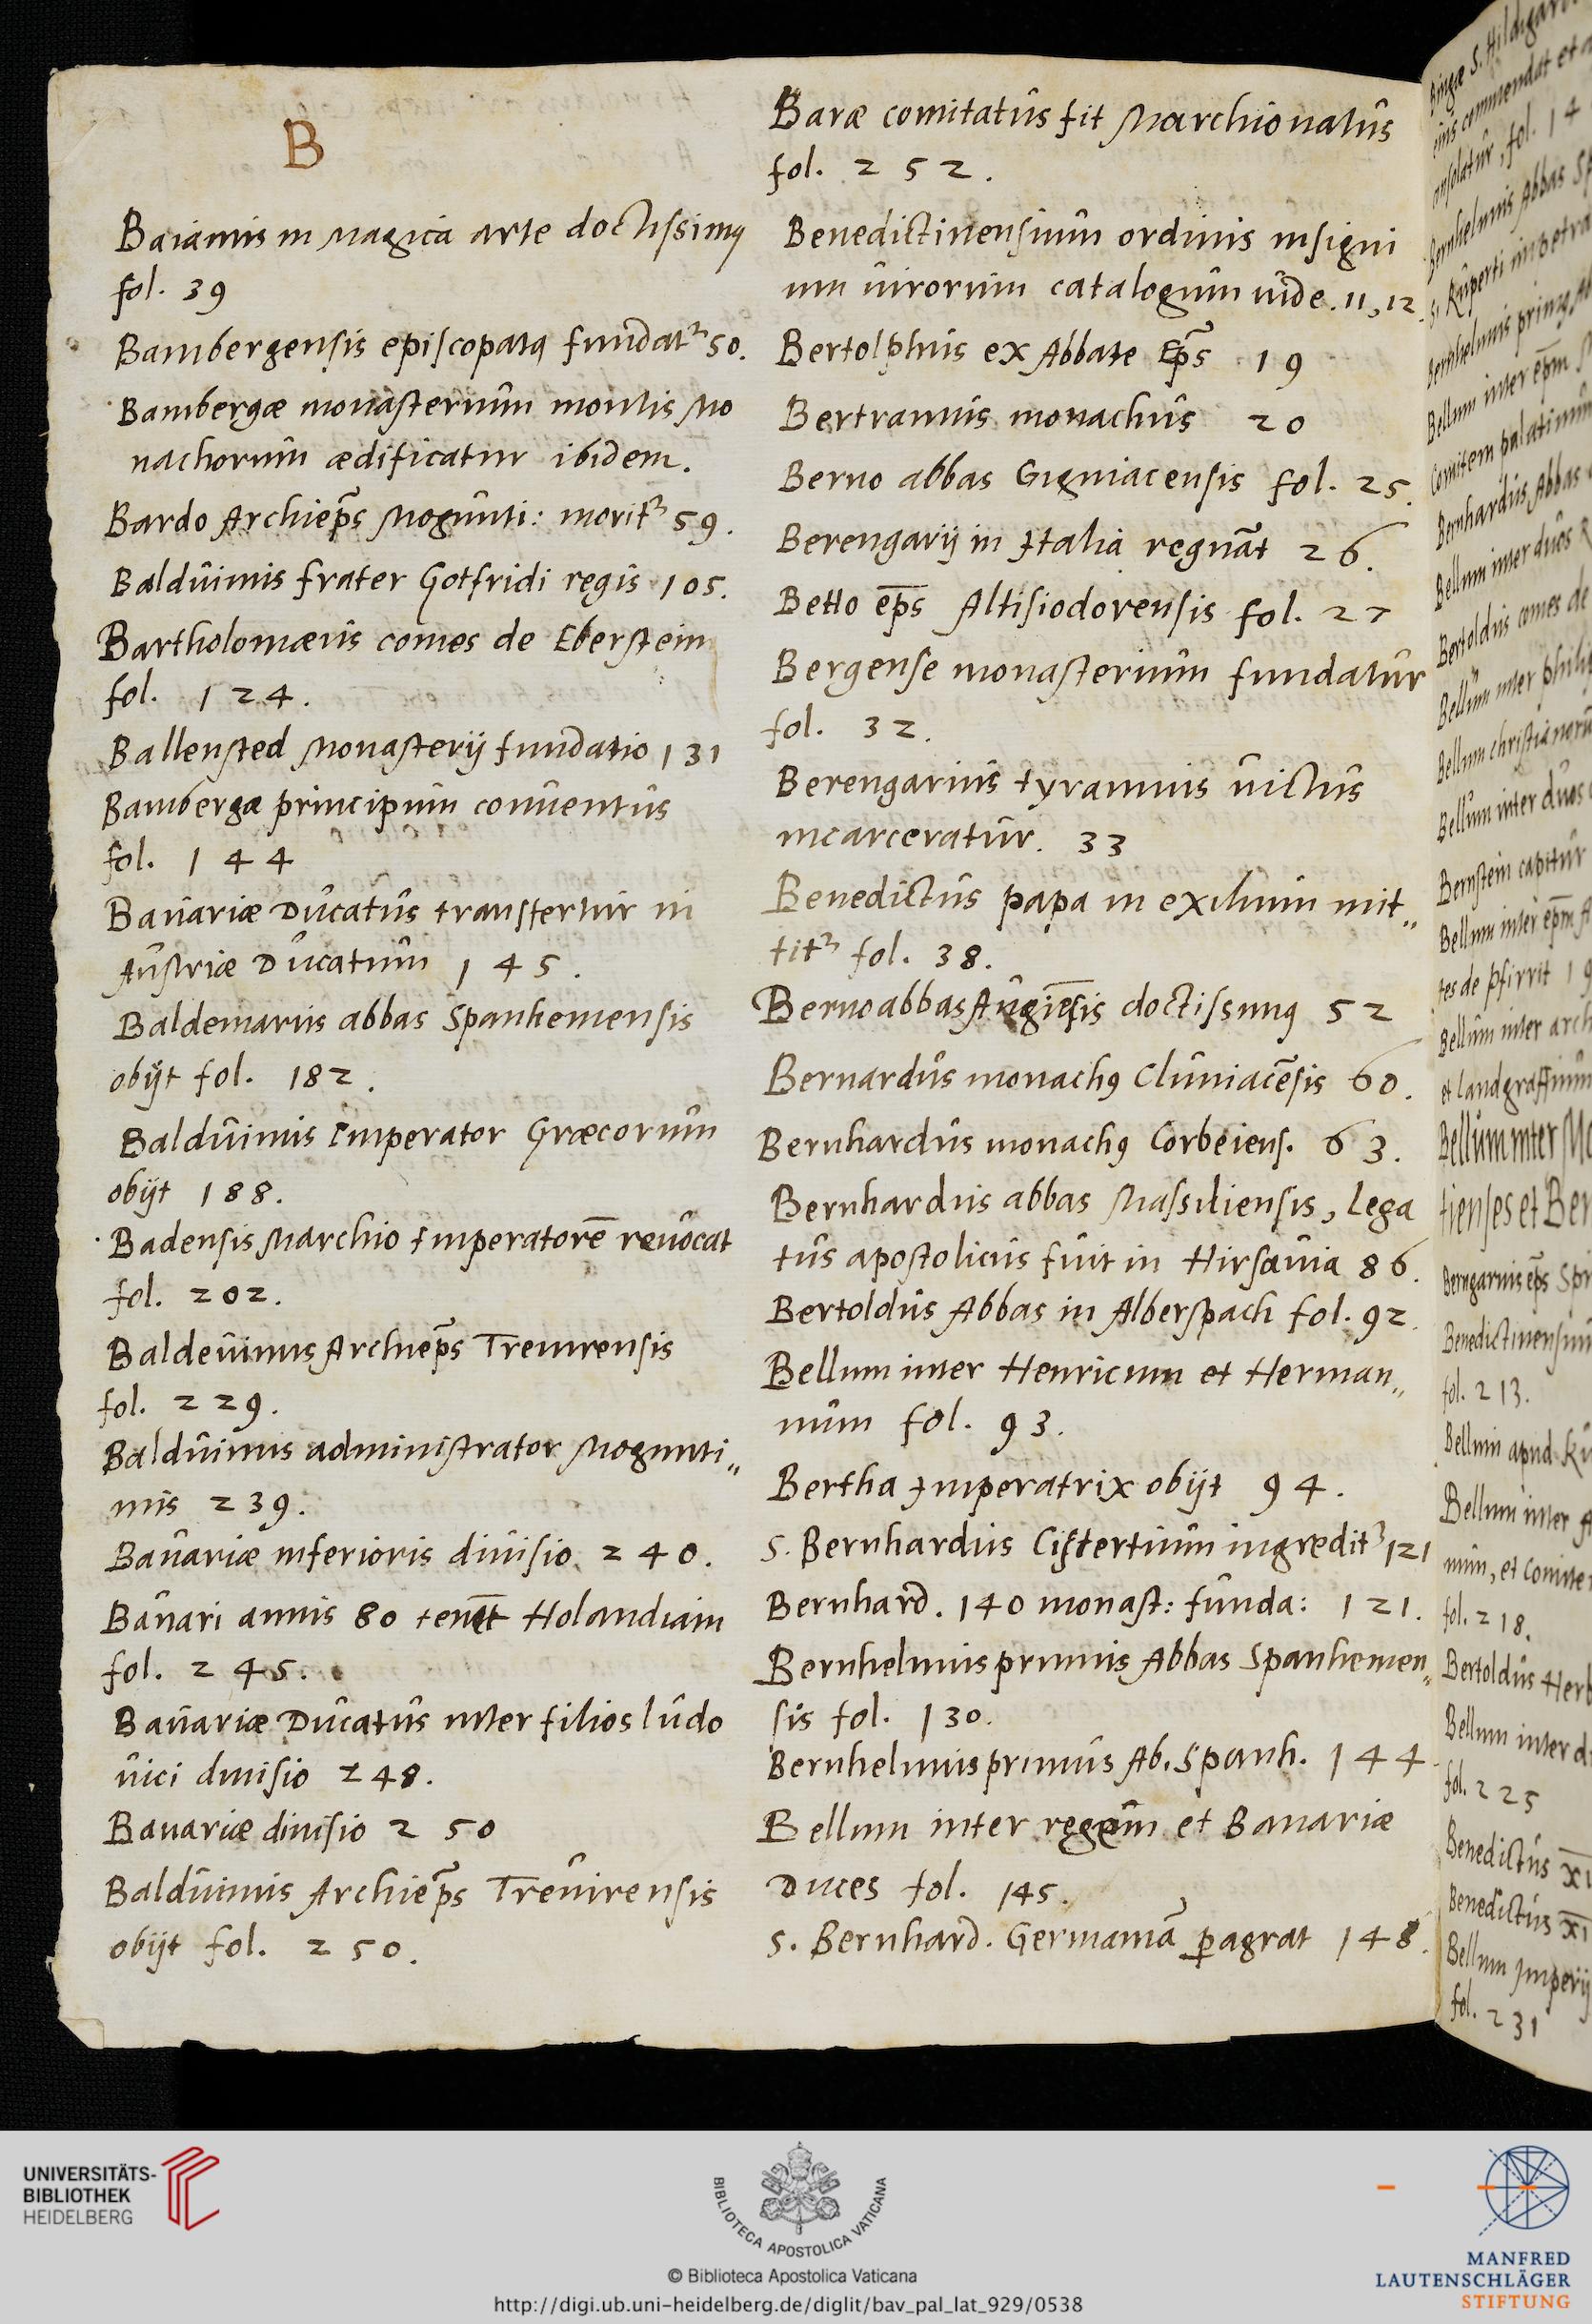 B
Baianus in Magica arte doctissimus
fol. 39
Bambergensis episcopatus fundatur 50.
Bambergæ monasterium montis Mo
nachorum ædificatur ibidem.
Bardo Archiep̄s Mogunti: morit᷑ 59.
Balduinus frater Gotfridi regis 105.
Bartholomæus comes de Eberstein
fol. 124.
Ballensted Monasterij fundatio 131
Bambergæ principum conuentus
fol. 144
Bauariæ Ducatus transfertur in
Austriæ Ducatum 145.
Baldemarus abbas Spanhemensis
obijt fol. 182.
Balduinus Imperator Græcorum
obijt 188.
Badensis Marchio Imperatorē reuocat
fol. 202.
Baldeuinus Archiep̄s Treuirensis
fol. 229.
Balduinus administrator Mogunti„
nus 239.
Bauariæ inferioris diuisio 240.
Bauari annis 80 tenēt Holandiam
fol. 245.
Bauariæ Ducatus inter filios ludo
uici diuisio 248.
Bauariæ diuisio 250
Balduinus Archiep̄s Treuirensis
obijt fol. 250.
Baræ comitatus fit Marchionatus
fol. 252.
Benedictinensium ordinis insigni
um uirorum catalogum uide. 11, 12.
Bertolphus ex Abbate Ep̄s 19
Bertramus monachus 20
Berno abbas Gigniacensis fol. 25.
Berengarij in Italia regnāt 26.
Betto ep̄s Altisiodorensis fol. 27
Bergense monasterium fundatur
fol. 32.
Berengarius tyrannus uictus
incarceratur. 33
Benedictus papa in exilium mit„
tit᷑ fol. 38.
Berno abbas Augiēsis doctissimꝰ 52
Bernardus monachꝰ Cluniacēsis 60.
Bernhardus monachꝰ Corbeiens. 63.
Bernhardus abbas Massiliensis, lega
tus apostolicus fuit in Hirsauia 86.
Bertoldus Abbas in Alberspach fol. 92.
Bellum inter Henricum et Herman„
num fol. 93.
Bertha Imperatrix obijt 94.
S. Bernhardus Cistertium ingredit᷑ 121
Bernhard. 140 monast: funda: 121.
Bernhelmus primus Abbas Spanhemen„
sis fol. 130.
Bernhelmus primus Ab. Spanh. 144.
Bellum inter regem et Bauariæ
Duces fol. 145.
S. Bernhard. Germaniā ꝑagrat 148.
Bingæ S. Hildigard
eius commendat et
onsolatur, fol. 14
Bernhelmus Abbas Sp
S. Ruperti impetra
Bernhelmus primꝰ Ab
Bellum inter ep̄m
Comitem palatinum
Bernhardus Abbas
Bellum inter duos
Bertoldus comes de
Bellum inter philip
Bellum christianoru
Bellum inter duos
Bernstein capitur
Bellum inter ep̄m A
tes de Pfirrit 19
Bellum inter arch
et landgraffium
Bellum inter Mo
tienses et Ber
Berngarius ep̄s Spir
Benedictinensium
fol. 213.
Bellum apud
Bellum inter A
num, et Comite
fol. 218.
Bertoldus Herb
Bellum inter d
fol. 225
Benedictus XI
Benedictus XI
Bellum Imperij
fol. 231
UNIVERSITÄTS-
BIBLIOTHEK
HEIDELBERG
BIBLIOTECA APOSTOLICA VATICANA
© Biblioteca Apostolica Vaticana
http://digi.ub.uni-heidelberg.de/diglit/bav_pal_lat_929/0538
MANFRED
LAUTENSCHLÄGER
STIFTUNG